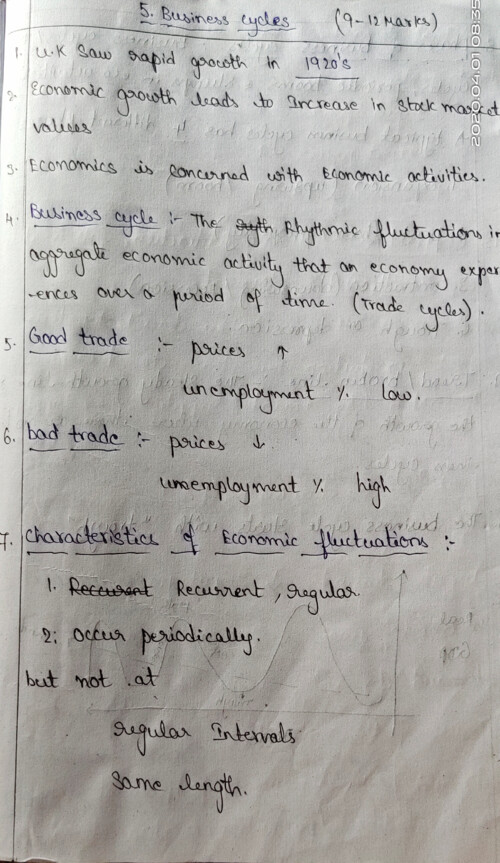 5. Business cycles (9-12 Marks)
1. U.K Saw rapid growth in 1920's
2. Economic growth leads to Increase in stock market
values
3. Economics is concerned with Economic activities.
4. Business cycle :- The Rhythmic fluctuations in
aggregate economic activity that an economy exper
-ences over a period of time. (Trade cycles).
5. Good trade :- prices ↑
unemployment % low.
6. bad trade :- prices ↓
unemployment % high
7. characteristics of Economic fluctuations :-
1. Reccurent Recurrent, regular
2: occur periodically.
but not at
regular Intervals
Same length.